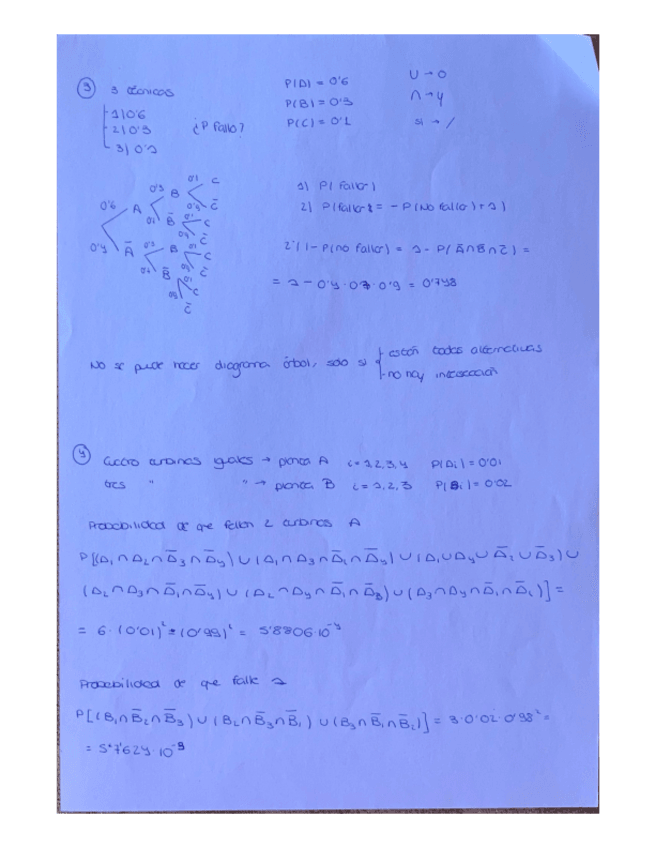 3 3 técnicos
1) 0'6
2) 0'3 ¿P fallo?
3) 0'1
P(A) = 0'6
P(B) = 0'3
P(C) = 0'1
U → O
∩ → y
si → /
0'6 A 0'3 B 0'1 C
C̄
B̄ C
C̄
0'4 Ā B C
C̄
B̄ C
C̄
1) P(fallo)
2) P(fallo) = - P(No fallo) + 1)
2) 1 - P(no fallo) = 1 - P(Ā∩B̄∩C̄) =
= 1 - 0'4 · 0'7 · 0'9 = 0'748
No se puede hacer diagrama árbol, solo si están todas alternativas
no hay intersección
4 Cuatro turbinas iguales → planta A i = 1,2,3,4 P(Ai) = 0'01
tres " " → planta B i = 1,2,3 P(Bi) = 0'02
Probabilidad de que fallen 2 turbinas A
P[(A₁∩A₂∩Ā₃∩Ā₄) U (A₁∩A₃∩Ā₂∩Ā₄) U (A₁UA₄UĀ₂UĀ₃) U
(A₂∩A₃∩Ā₁∩Ā₄) U (A₂∩A₄∩Ā₁∩Ā₃) U (A₃∩A₄∩Ā₁∩Ā₂)] =
= 6 · (0'01)² * (0'99)² = 5'8806·10⁻⁴
Probabilidad de que falle 1
P[(B₁∩B̄₂∩B̄₃) U (B₂∩B̄₃∩B̄₁) U (B₃∩B̄₁∩B̄₂)] = 3·0'02·0'98² =
= 5'7624·10⁻³